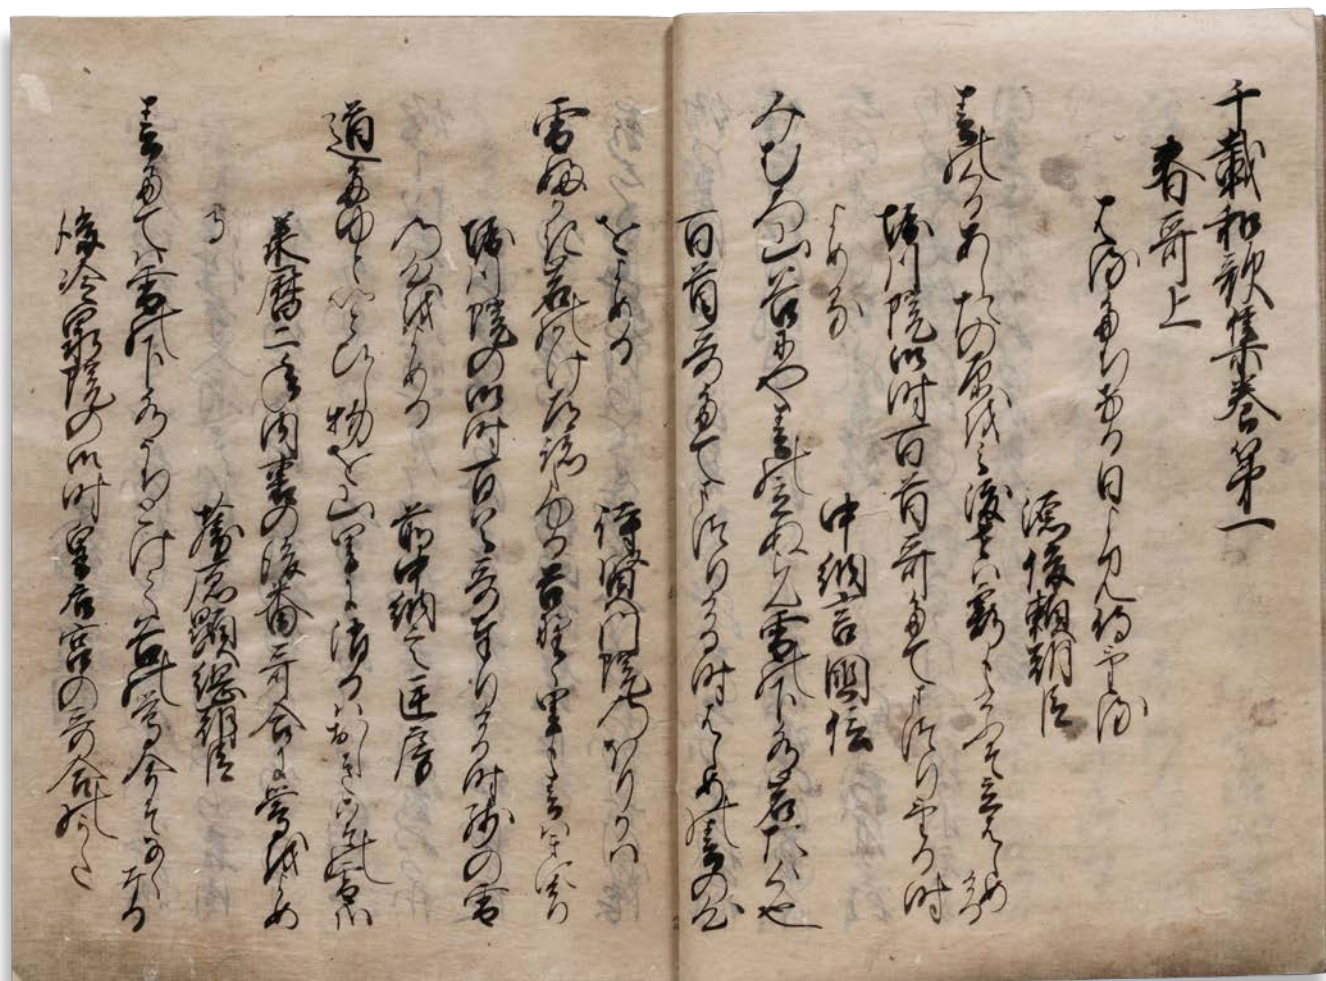 千載和歌集巻第一
春哥上
はるたちける日よみ侍ける
源俊頼朝臣
春のくるあしたの原を見渡せは霞もけふそ立はしめける
堀川院御時百首哥たてまつりける時
よめる
中納言国信
みむろ山谷にや春の立ぬらん雪の下水岩たゝくや
百首哥たてまつりける時はしめの春の心
をよめる
待賢門院のほりかは
雪ふかき岩のかけ道あとたゆる吉野の里も春はきにけり
堀川院の御時百首哥奉りける時残の雪
の心をよめる
前中納言匡房
道たゆといとひし物を山里に消るはおしきこその雪かな
承暦二年内裏の後番哥合に鶯をよめ
る
藤原顕綱朝臣
春たては雪の下水うちとけて谷の鶯今そなくなる
後冷泉院の御時皇后宮の哥合の